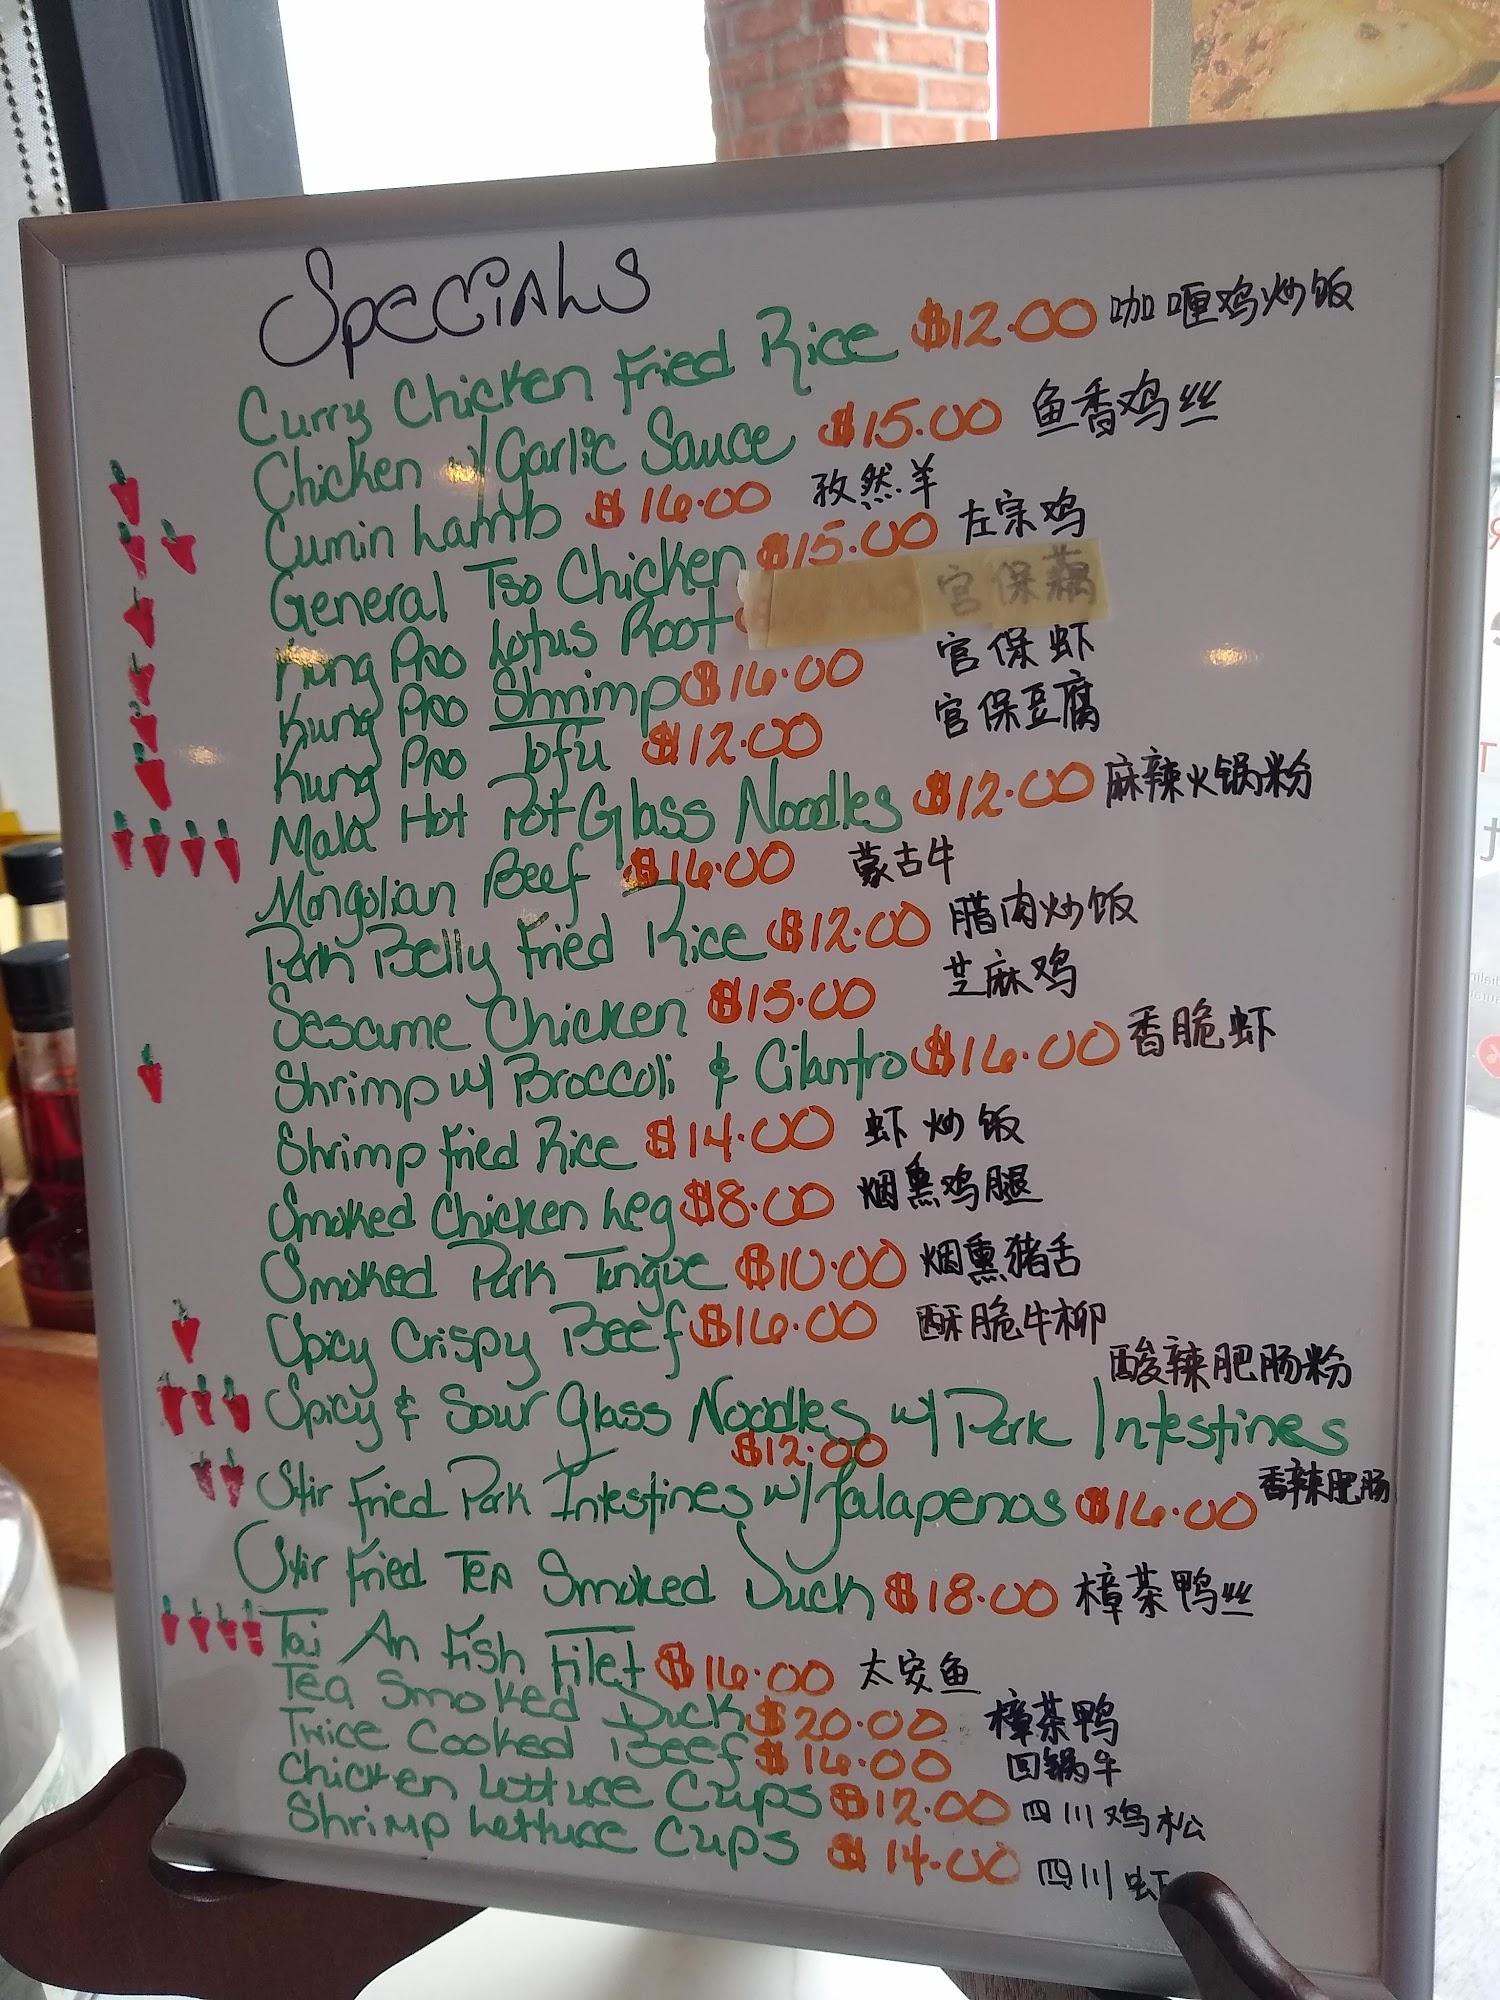 Specials
Curry Chicken Fried Rice $12.00 咖喱鸡炒饭
Chicken w/ Garlic Sauce $15.00 鱼香鸡丝
Cumin Lamb $16.00 孜然羊
General Tso Chicken $15.00 左宗鸡
Kung Pao Lotus Root 宫保藕
Kung Pao Shrimp $16.00 宫保虾
Kung Pao Tofu $12.00 宫保豆腐
Mala Hot Pot Glass Noodles $12.00 麻辣火锅粉
Mongolian Beef $16.00 蒙古牛
Pork Belly Fried Rice $12.00 腊肉炒饭
Sesame Chicken $15.00 芝麻鸡
Shrimp w/ Broccoli & Cilantro $16.00 香脆虾
Shrimp Fried Rice $14.00 虾炒饭
Smoked Chicken Leg $8.00 烟熏鸡腿
Smoked Pork Tongue $10.00 烟熏猪舌
Spicy Crispy Beef $16.00 酥脆牛柳
酸辣肥肠粉
Spicy & Sour Glass Noodles w/ Pork Intestines
$12.00
Stir Fried Pork Intestines w/ Jalapenos $16.00 香辣肥肠
Stir Fried Tea Smoked Duck $18.00 樟茶鸭丝
Tai An Fish Filet $16.00 太安鱼
Tea Smoked Duck $20.00 樟茶鸭
Twice Cooked Beef $16.00 回锅牛
Chicken Lettuce Cups $12.00 四川鸡松
Shrimp Lettuce Cups $14.00 四川虾